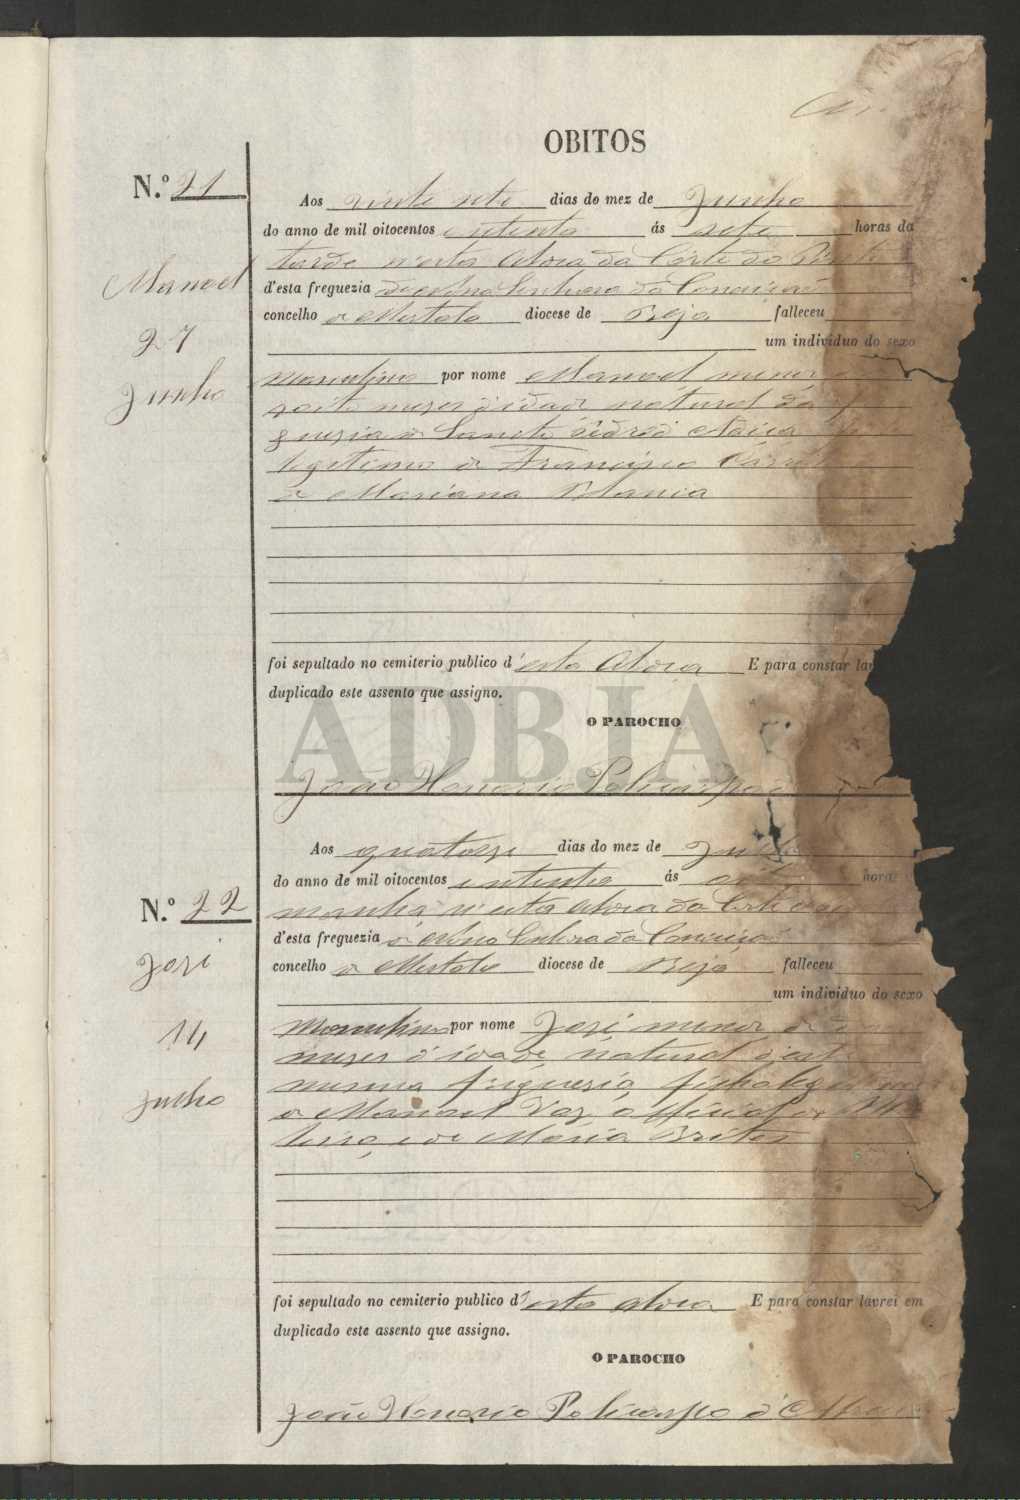 OBITOS
N.º 21
Manoel
27
Junho
Aos vinte sete dias do mez de Junho
do anno de mil oitocentos oitenta ás sete horas da
tarde n'esta Aldeia da Corte do Pinto
d'esta freguezia de Nossa Senhora da Conceição
concelho de Mertola diocese de Beja falleceu
um individuo do sexo
Masculino por nome Manoel menor
oito mezes d'idade natural da
guezia de Sancto
legitimo de Francisco
e Mariana
foi sepultado no cemiterio publico d'esta Aldeia E para constar
duplicado este assento que assigno.
O PAROCHO
João Honorio Policarpo
ADBJA
N.º 22
José
14
Julho
Aos quatorze dias do mez de Julho
do anno de mil oitocentos oitenta ás oito horas
manhã n'esta Aldeia da Corte
d'esta freguezia de Nossa Senhora da Conceição
concelho de Mertola diocese de Beja falleceu
um individuo do sexo
Masculino por nome José menor de
mezes d'idade, natural d'esta
mesma freguezia, filho legitimo
de Manoel Vaz, official de
e de Maria Brites
foi sepultado no cemiterio publico d'esta aldeia E para constar lavrei em
duplicado este assento que assigno.
O PAROCHO
João Honorio Policarpo d'